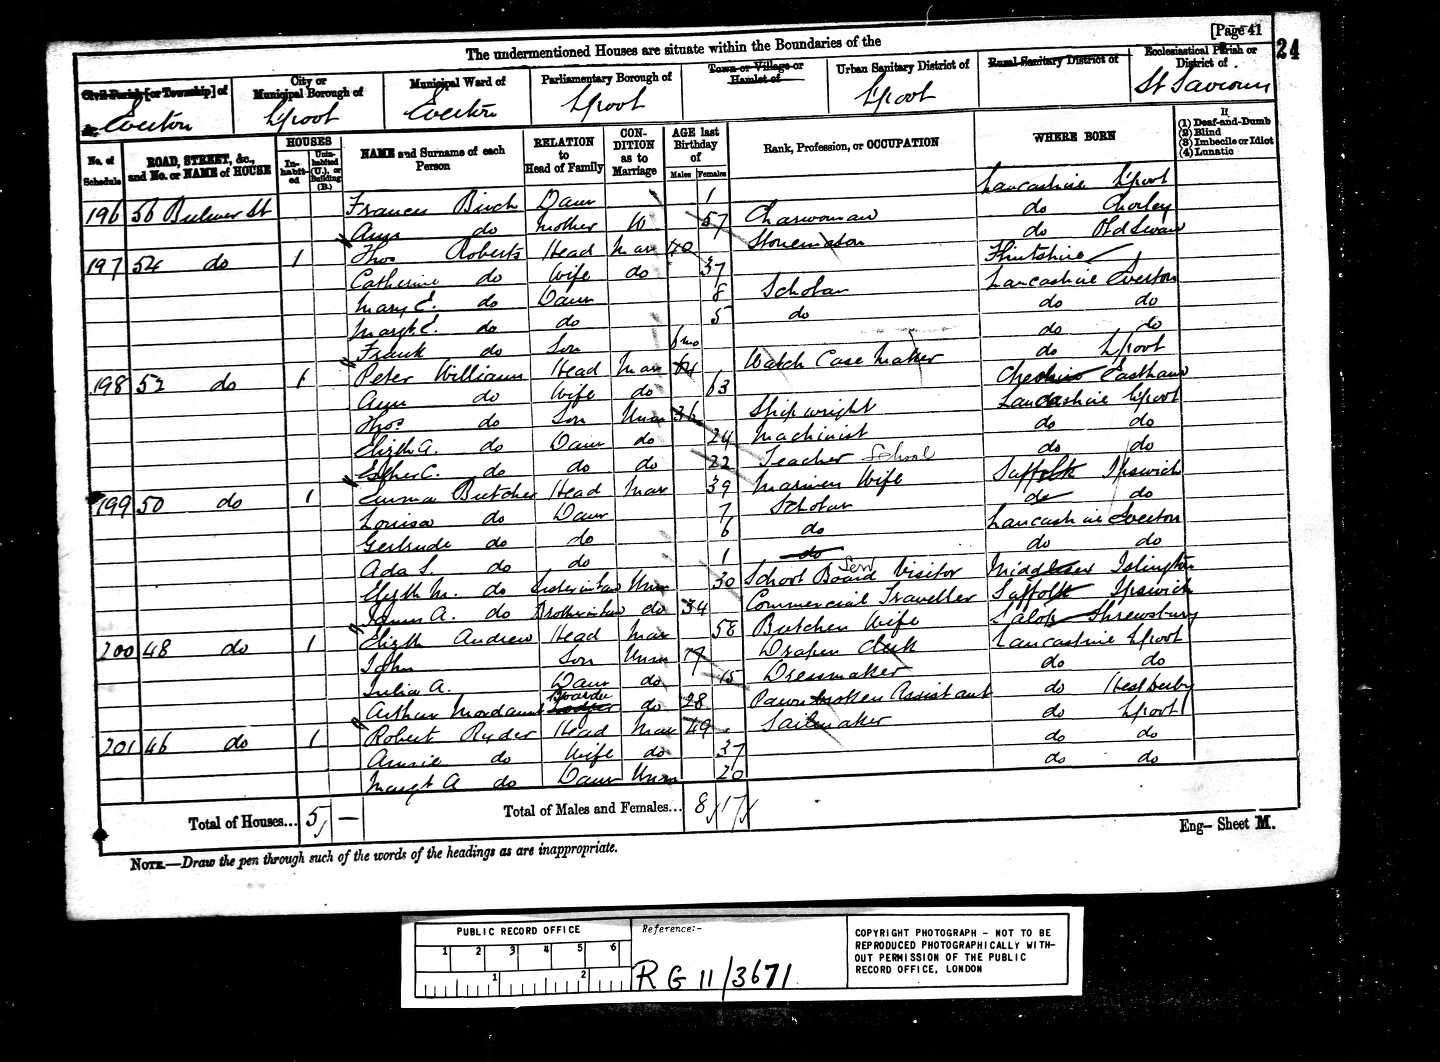 [Page 41
24
The undermentioned Houses are situate within the Boundaries of the
Civil Parish [or Township] of
City or Municipal Borough of
Municipal Ward of
Parliamentary Borough of
Town or Village or Hamlet of
Urban Sanitary District of
Rural Sanitary District of
Ecclesiastical Parish or District of
Everton L'pool Everton L'pool L'pool St Saviours
No. of Schedule
ROAD, STREET, &c., and No. or NAME of HOUSE
HOUSES
In-habit-ed
Unin-habited (U.), or Building (B.)
NAME and Surname of each Person
RELATION to Head of Family
CON-DITION as to Marriage
AGE last Birthday of
Males Females
Rank, Profession, or OCCUPATION
WHERE BORN
If
(1) Deaf-and-Dumb
(2) Blind
(3) Imbecile or Idiot
(4) Lunatic
196 56 Bulwer St Frances Birch Daur 1 Lancashire L'pool
Ann do Mother W 57 Charwoman do Chorley
197 54 do 1 Thos Roberts Head Mar 40 Stonemason do Old Swan
Catherine do Wife do 37 Flintshire
Mary E. do Daur 8 Scholar Lancashire Everton
Margt E. do do 5 do do do
Frank do Son 6 mo do do
198 52 do 1 Peter Williams Head Mar 64 Watch Case Maker do L'pool
Ann do Wife do 63 Cheshire Eastham
Thos do Son Unm 36 Shipwright Lancashire L'pool
Elizth A. do Daur do 24 Machinist do do
Esther C. do do do 22 Teacher School do do
199 50 do 1 Emma Butcher Head Mar 39 Mariners Wife Suffolk Ipswich
Louisa do Daur 7 Scholar do do
Gertrude do do 6 do Lancashire Everton
Ada L. do do 1 do do do
Elizth M. do Sister in Law Unm 30 School Board Visitor Middlesex Islington
James A. do Brother in Law do 34 Commercial Traveller Suffolk Ipswich
200 48 do 1 Elizth Andrew Head Mar 58 Butchers Wife Salop Shrewsbury
John Son Unm 17 Draper Clerk Lancashire L'pool
Julia A. Daur do 15 Dressmaker do do
Arthur Mordaunt Boarder do 28 Pawnbrokers Assistant do West Derby
201 46 do 1 Robert Ryder Head Mar 49 Sailmaker do L'pool
Annie do Wife do 37 do do
Margt A do Daur Unm 20 do do
Total of Houses... 5 —
Total of Males and Females... 8 17
Eng— Sheet M.
NOTE.—Draw the pen through such of the words of the headings as are inappropriate.
PUBLIC RECORD OFFICE
1 2 3 4 5 6
1 2
Reference:-
RG 11/3671
COPYRIGHT PHOTOGRAPH - NOT TO BE
REPRODUCED PHOTOGRAPHICALLY WITH-
OUT PERMISSION OF THE PUBLIC
RECORD OFFICE, LONDON